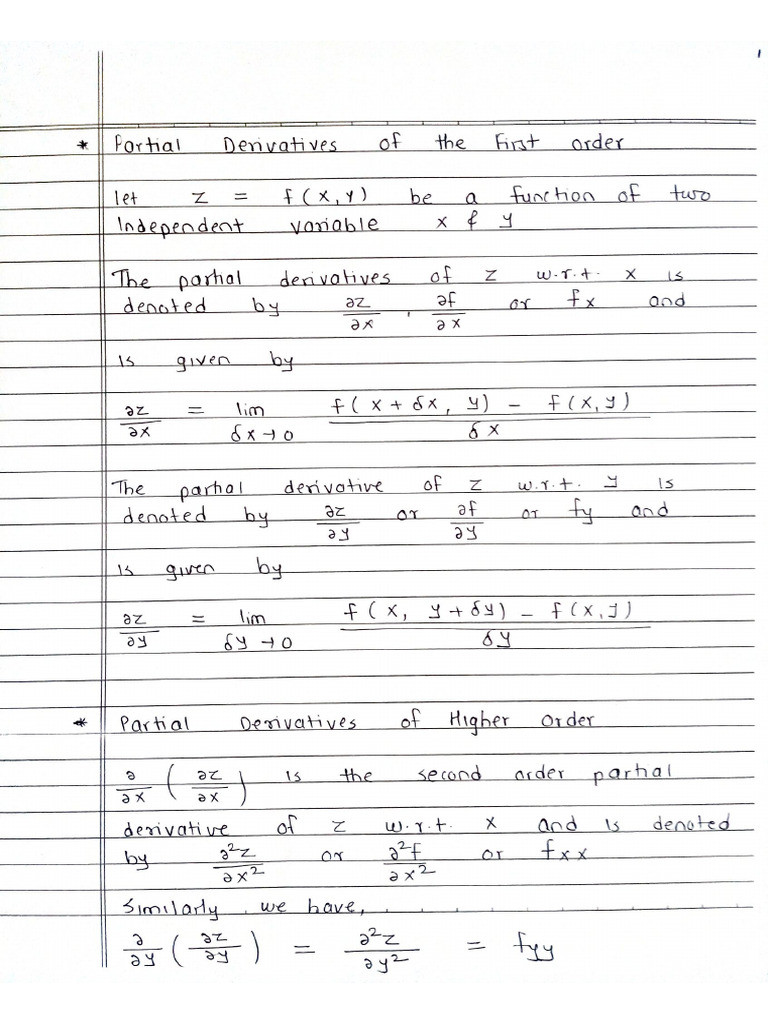 * Partial Derivatives of the First order
let z = f(x,y) be a function of two
Independent variable x & y
The partial derivatives of z w.r.t. x is
denoted by ∂z/∂x , ∂f/∂x or fx and
is given by
∂z/∂x = lim δx→0 f(x+δx, y) - f(x,y) / δx
The partial derivative of z w.r.t. y is
denoted by ∂z/∂y or ∂f/∂y or fy and
is given by
∂z/∂y = lim δy→0 f(x, y+δy) - f(x,y) / δy
* Partial Derivatives of Higher Order
∂/∂x (∂z/∂x) is the second order partial
derivative of z w.r.t. x and is denoted
by ∂²z/∂x² or ∂²f/∂x² or fxx
Similarly we have,
∂/∂y (∂z/∂y) = ∂²z/∂y² = fyy